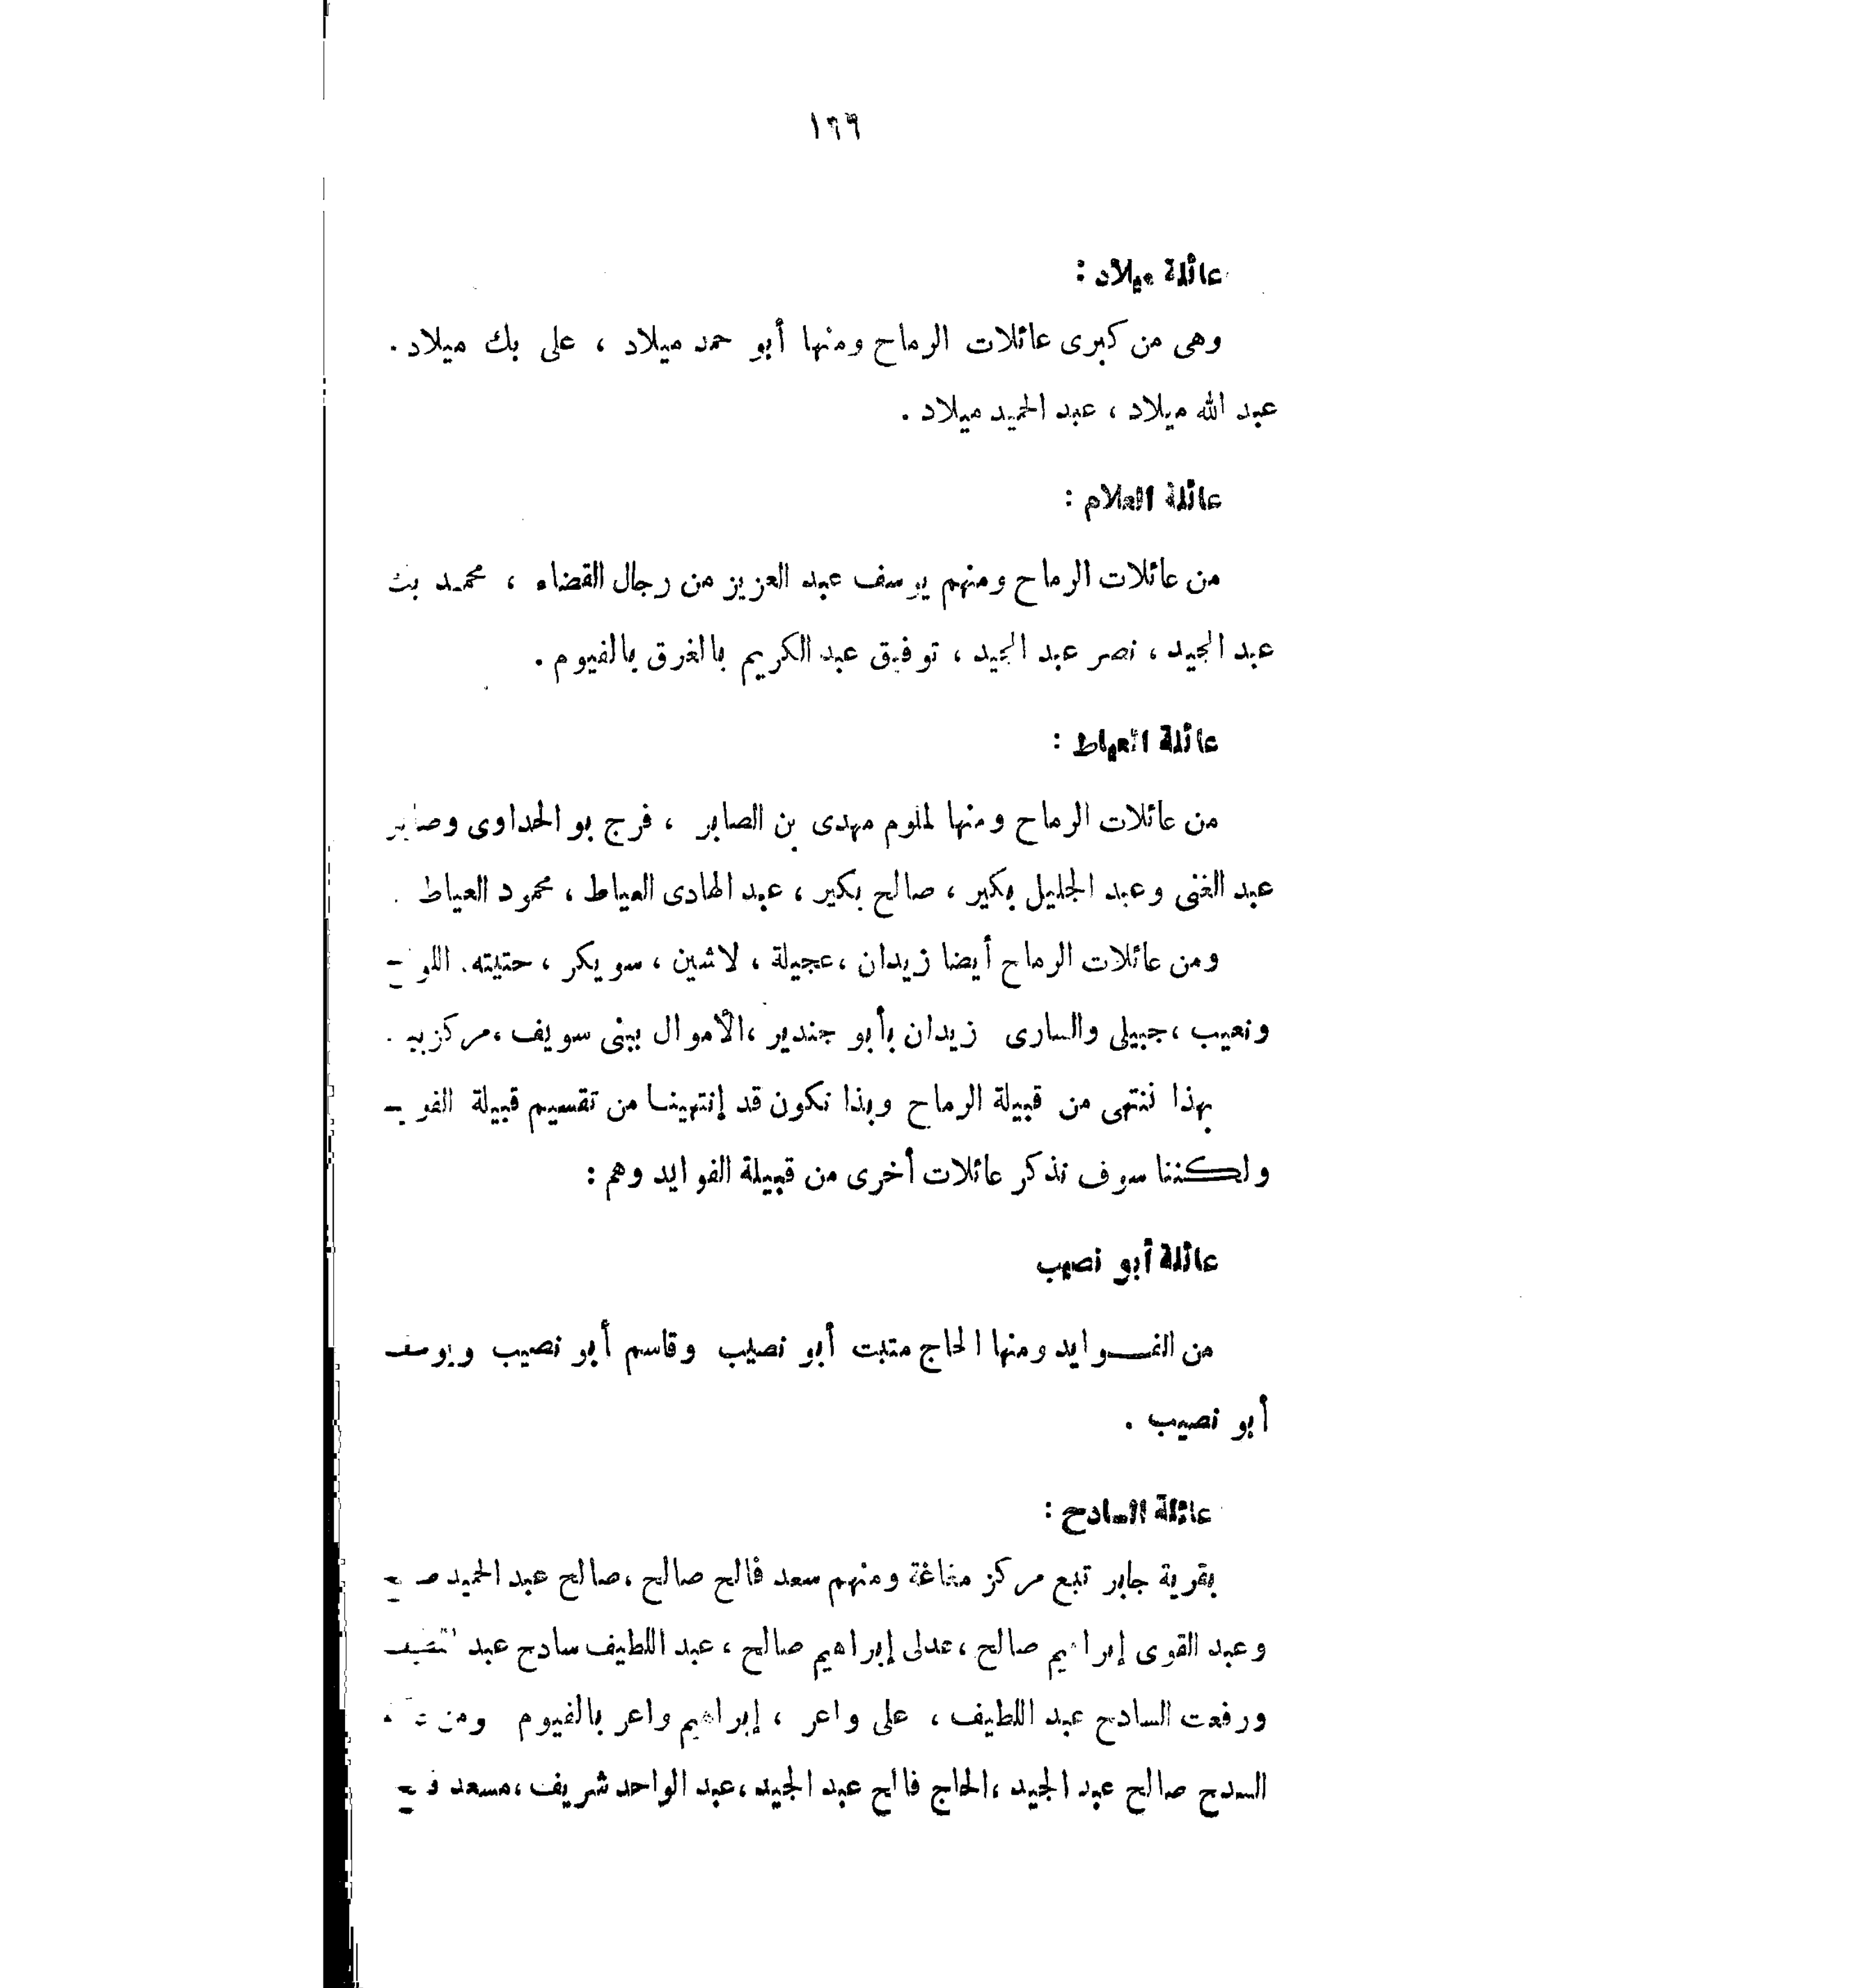 ١٦٩
عائلة ميلاد :
وهى من كبرى عائلات الرماح ومنها أبو حمد ميلاد ، على بك ميلاد .
عبد الله ميلاد ، عبد الحميد ميلاد .
عائلة العلام :
من عائلات الرماح ومنهم يوسف عبد العزيز من رجال القضاء ، محمد بك
عبد المجيد ، نصر عبد المجيد ، توفيق عبد الكريم بالغرق بالفيوم .
عائلة العياط :
من عائلات الرماح ومنها لملوم مهدى بن الصابر ، فرج بو الحداوى وصابر
عبد الغنى وعبد الجليل بكير ، صالح بكير ، عبد الهادى العياط ، محمود العياط .
ومن عائلات الرماح أيضا زيدان ،عجيلة ، لاشين ، سويكر ، حتيته.
ونعيب ،جبيلى والسارى زيدان بأبو جندير ،الأموال ببنى سويف ،مركز
بهذا ننتهى من قبيلة الرماح وبذا نكون قد إنتهينا من تقسيم قبيلة
ولكننا سوف نذكر عائلات أخرى من قبيلة الفوايد وهم :
عائلة أبو نصيب
من الفوايد ومنها الحاج متبت أبو نصيب وقاسم أبو نصيب ويوسف
أبو نصيب .
عائلة السادح :
بقرية جابر تبع مركز مغاغة ومنهم سعد فالح صالح ،صالح عبد الحميد
وعبد القوى إبراهيم صالح ،عدلى إبراهيم صالح ، عبد اللطيف سادح عبد
ورفعت السادح عبد اللطيف ، على واعر ، إبراهيم واعر بالفيوم ومن
السدح صالح عبد المجيد ،الحاج فالح عبد المجيد ،عبد الواحد شريف ،مسعد